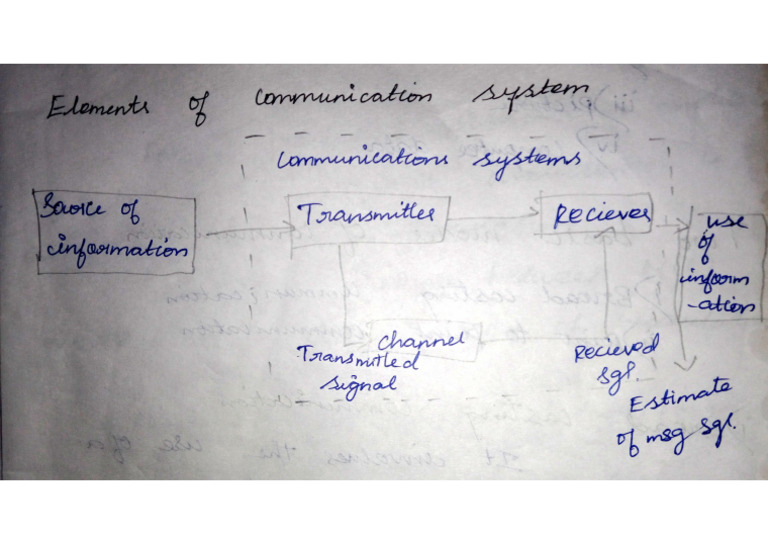 Elements of Communication system
Communications systems
Source of
information
Transmitter
Reciever
use
of
inform
-ation
channel
Transmitted
signal
Recieved
sgl.
Estimate
of msg sgl.